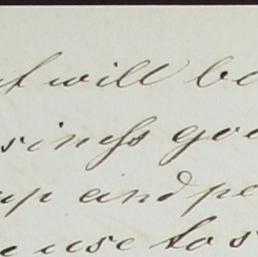 t will be
siness go
up and pe
use to s